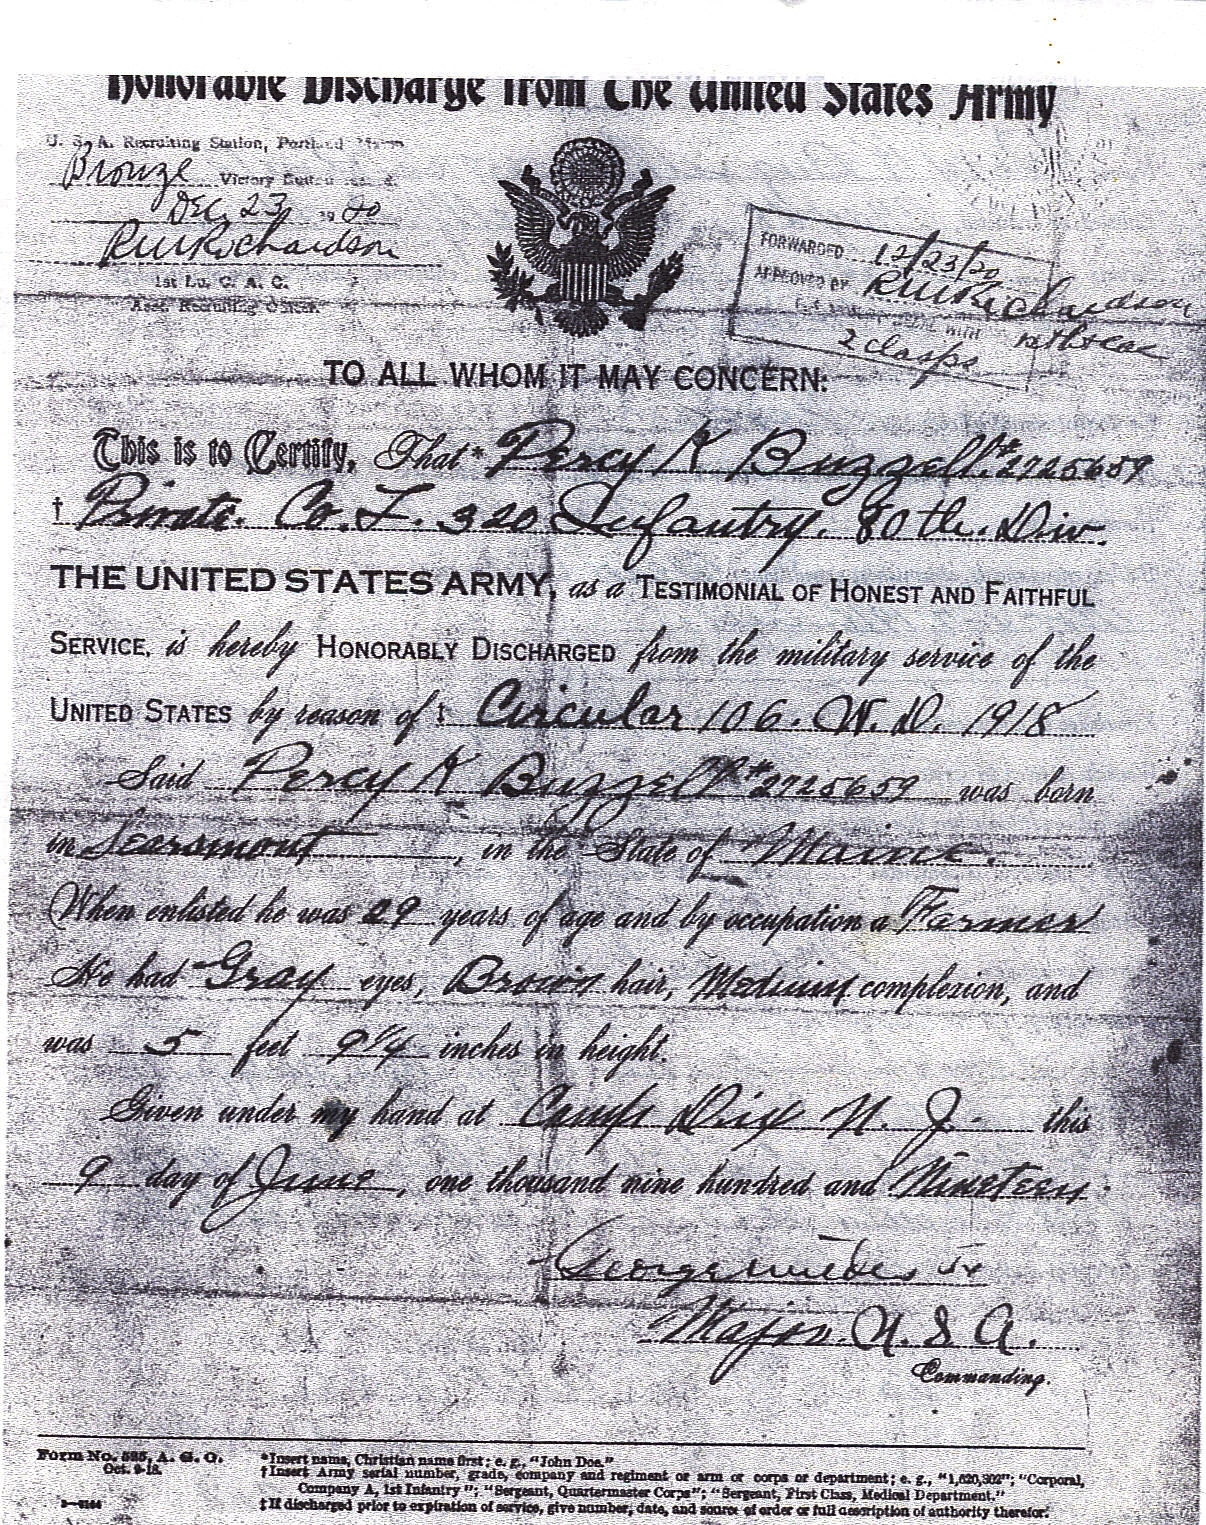 Honorable Discharge from The United States Army
U. S. A. Recruiting Station, Portland
Bronze Victory Button
Dec. 23, 1920
R W Richardson
1st Lt. C. A. C.
Asst. Recruiting Officer.
FORWARDED 12/23/20
APPROVED BY R W Richardson
2 clasps
TO ALL WHOM IT MAY CONCERN:
This is to Certify, That* Percy K Buzzell. #2725659
† Private. Co. L. 320 Infantry. 80th. Div.
THE UNITED STATES ARMY, as a TESTIMONIAL OF HONEST AND FAITHFUL
SERVICE, is hereby HONORABLY DISCHARGED from the military service of the
UNITED STATES by reason of ‡ Circular 106. W. D. 1918
Said Percy K Buzzell #2725659 was born
in Searsmont, in the State of Maine.
When enlisted he was 29 years of age and by occupation a Farmer
He had Gray eyes, Brown hair, Medium complexion, and
was 5 feet 9 1/4 inches in height.
Given under my hand at Camp Dix N. J. this
9 day of June, one thousand nine hundred and Nineteen.
George
Major. U. S. A.
Commanding.
Form No. 525, A. G. O.
Oct. 9-18.
*Insert name, Christian name first; e. g., "John Doe."
†Insert Army serial number, grade, company and regiment or arm or corps or department; e. g., "1,620,302"; "Corporal,
Company A, 1st Infantry"; "Sergeant, Quartermaster Corps"; "Sergeant, First Class, Medical Department."
‡If discharged prior to expiration of service, give number, date, and source of order or full description of authority therefor.